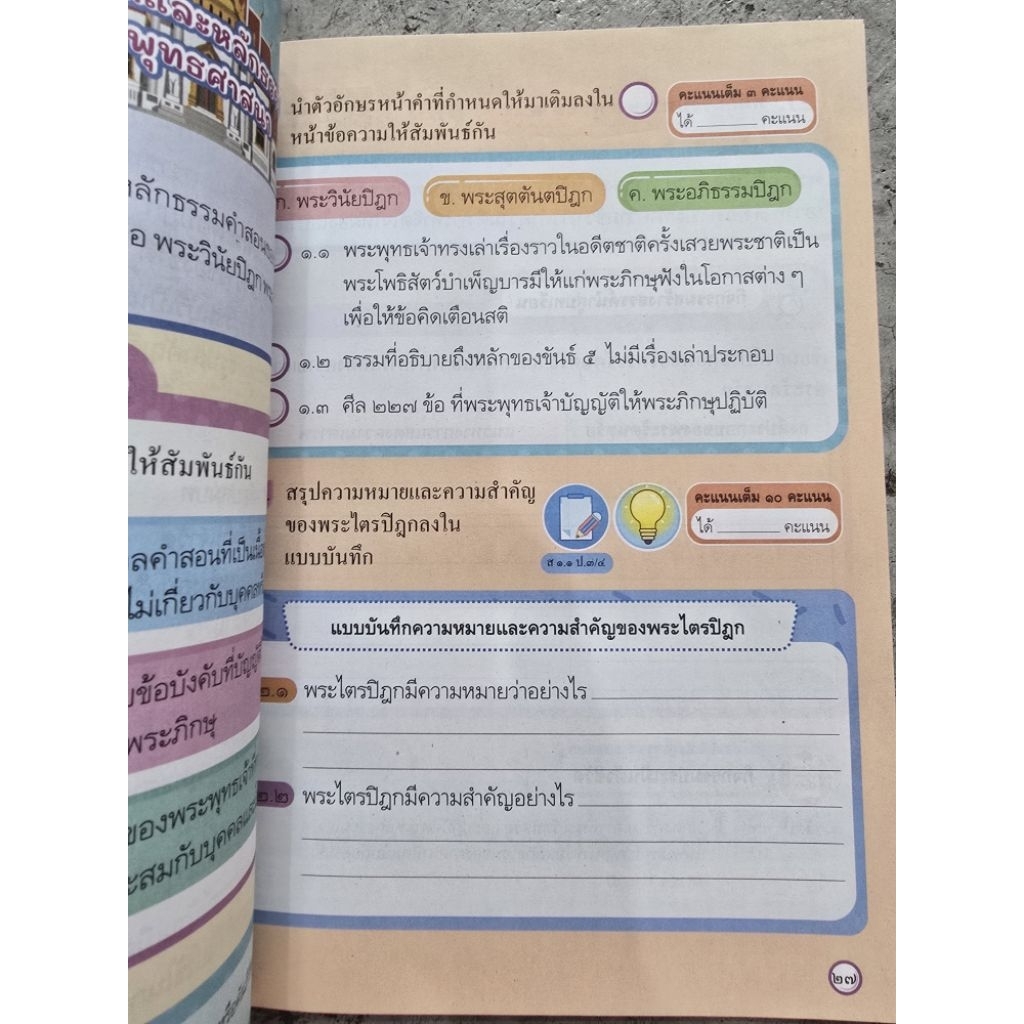 และหลัก
พุทธศาสนา
หลักธรรมคำสอน
พระวินัยปิฎก
ให้สัมพันธ์กัน
คำสอนที่เป็น
ไม่เกี่ยวกับบุคคล
ข้อบังคับที่บัญญัติ
พระภิกษุ
ของพระพุทธเจ้า
กับบุคคล
นำตัวอักษรหน้าคำที่กำหนดให้มาเติมลงใน
หน้าข้อความให้สัมพันธ์กัน
คะแนนเต็ม ๓ คะแนน
ได้ ________ คะแนน
ก. พระวินัยปิฎก ข. พระสุตตันตปิฎก ค. พระอภิธรรมปิฎก
๑.๑ พระพุทธเจ้าทรงเล่าเรื่องราวในอดีตชาติครั้งเสวยพระชาติเป็น
พระโพธิสัตว์บำเพ็ญบารมีให้แก่พระภิกษุฟังในโอกาสต่าง ๆ
เพื่อให้ข้อคิดเตือนสติ
๑.๒ ธรรมที่อธิบายถึงหลักของขันธ์ ๕ ไม่มีเรื่องเล่าประกอบ
๑.๓ ศีล ๒๒๗ ข้อ ที่พระพุทธเจ้าบัญญัติให้พระภิกษุปฏิบัติ
สรุปความหมายและความสำคัญ
ของพระไตรปิฎกลงใน
แบบบันทึก
ส ๑.๑ ป.๓/๔
คะแนนเต็ม ๑๐ คะแนน
ได้ ________ คะแนน
แบบบันทึกความหมายและความสำคัญของพระไตรปิฎก
๒.๑ พระไตรปิฎกมีความหมายว่าอย่างไร
๒.๒ พระไตรปิฎกมีความสำคัญอย่างไร
๒๗